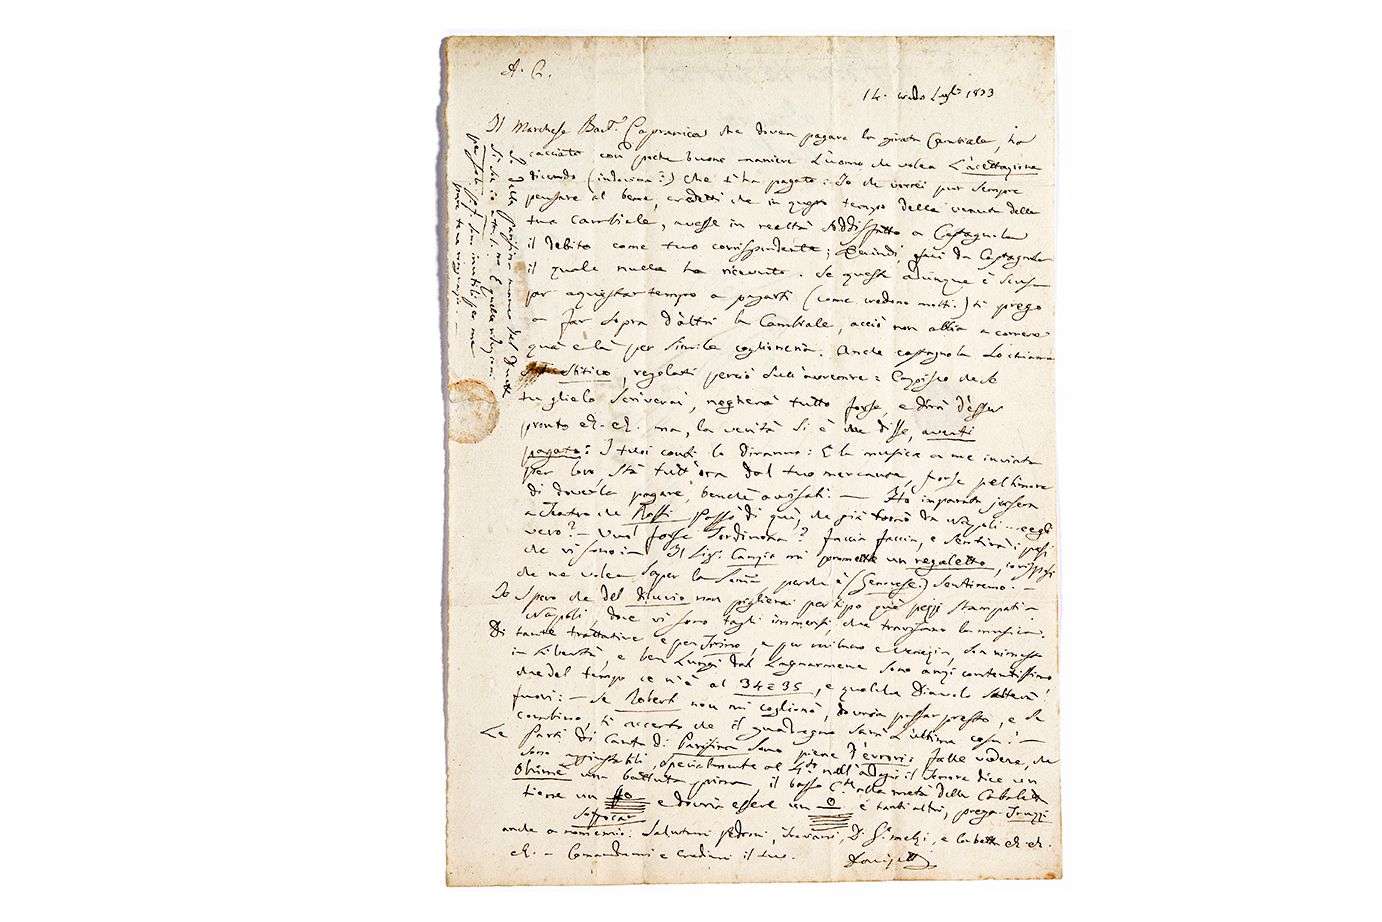 A. C.
14. credo Lugl.o 1833
Il Marchese Bart.o Capranica che dovea pagare la girata Cambiale, ha
cacciato con poche buone maniere l'uomo che volea l'accettazione
dicendo (indovina?) che t'ha pagato: Io che vorrei pur sempre
pensare al bene, credetti che in questo tempo della venuta della
tua cambiale, avesse in realtà soddisfatto a Castagnola
il debito come tuo corrispondente; Quindi, girai da Castagnola
il quale nulla ha ricevuto. Se questa adunque è scusa
per aquistar tempo a pagarti (come credono molti.) ti prego
a far sopra d'altri la Cambiale, acciò non abbia a correre
quà e là per simile coglioneria. Anche Castagnola lo chiama
stitico, regolati perciò sull'avvenire: Capisco che se
tu glielo scriverai, negherà tutto forse, e dirà d'esser
pronto ec. ec. ma, la verità si è che disse, averti
pagato: I tuoi conti lo diranno: E la musica a me inviata
per loro stà tutt'ora dal tuo mercante, forse pel timore
di doverla pagare, benchè avvisati. — Hò imparato jersera
a Teatro che passò di quì, che già tornò da Napoli ... eegli
vero? — Vuol forse Ferdinona? faccia faccia, e sentirà i pesi
che vi sono: — Il Sig. mi promette un regaletto,
che ne volea saper la perchè è (Genovese.) sentiremo. —
Io spero che del Diluvio non piglierai per tipo quà pezzi stampati a
Napoli, dove vi sono tagli immensi, che travisano la musica.
Di tante trattative e per Torino, e per Milano e Venezia, son rimasto
in libertà, e ben lungi dal lagnarmene sono anzi contentissimo,
che del tempo ce n'è al 34 e 35, e qualche Diavolo salterà
fuori: — Se Robert non mi cogliona, dovria passar presto, e se
combino, ti accerto che il guadagno sarà l'ultima cosa! —
Le Parti di Canto di Parisina sono piene d'errori: falle vedere, che
sono aggiustabili, specialmente al 4.to nell'adagio il tenore dice un
Ohimè una battuta prima, il basso C.te alla metà della Cabaletta
tiene un e dovria essere un e tanti altri, prega
soffocar
anche a nome mio: Salutami Pedroni, D. G. Melzi, e la ec. ec.
ec. — Comandami e credimi il tuo.
Donizetti
Se della Parisina manca del Duetto